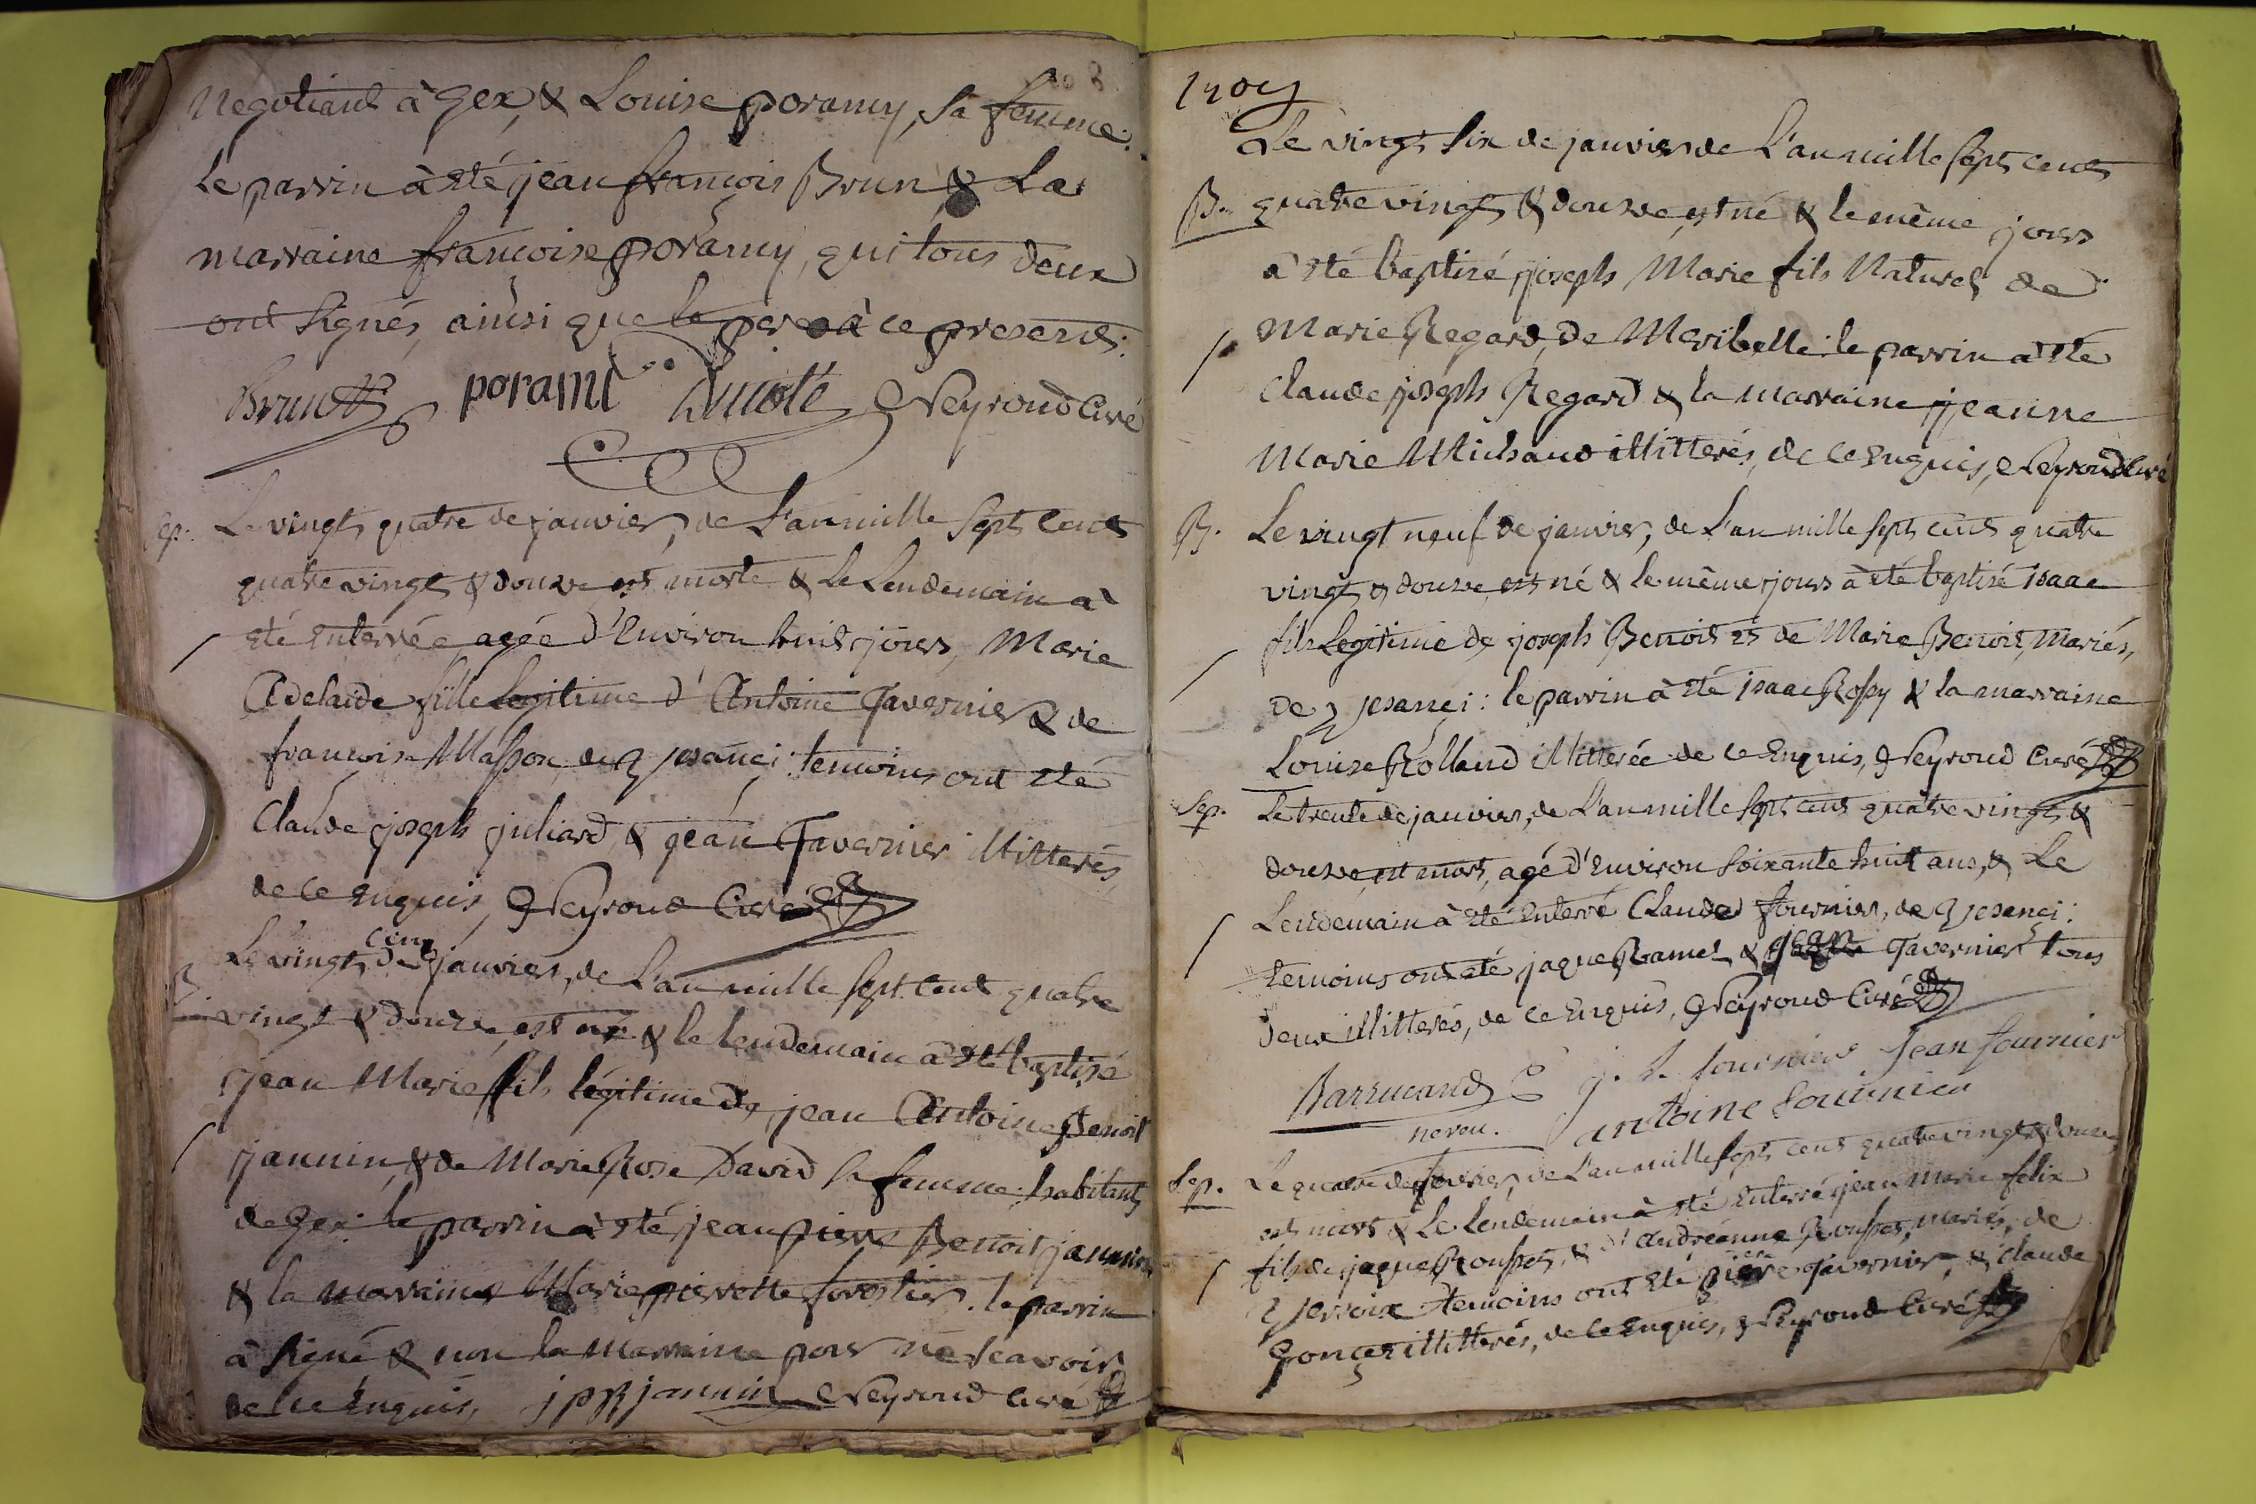 Negotiant à Gex, & Louise poramy, sa femme.
le parrin à eté jean françois Brun & La
marraine françoise poramy, qui tous deux
ont signés, ainsi que le pere à ce present.
Brun porami Neyroud Curé
Sep. Le vingt quatre de janvier, de L'an mille sept cent
quatre vingt & douze est morte & le Lendemain a
eté Enterrée agée d'Environ huit jours, Marie
Adelaide fille legitime d'Antoine Tavernier & de
françoise Masson de jesanci: temoins ont eté
Claude joseph juliard & jean Tavernier illitterés,
de ce Enquis, Neyroud Curé
cinq
B. Le vingt de janvier, de L'an mille sept cent quatre
vingt & douze, est né & le lendemain à eté baptisé
jean Marie fils légitime de jean Antoine Benoit
jannin, & de Marie Rose David sa femme habitants
de Gex: le parrin à eté jean pierre Benoit jannin
& la marraine Marie pierrette forestier. le parrin
à signé & non la marraine pour ne scavoir
de ce Enquis, j p B jannin Neyroud curé
Le vingt six de janvier de L'an mille sept cent
B. quatre vingt & douze, est né & le même jour
à eté baptisé joseph Marie fils Naturel de
Marie Regard, de Meribelle: le parrin à eté
Claude joseph Regard & la marraine jeanne
Marie Michaud illitterés, de ce Enquis, Neyroud Curé
B. Le vingt neuf de janvier, de L'an mille sept cent quatre
vingt & douze, est né & le même jour à eté baptisé isaac
fils Legitime de joseph Benoit et de Marie Benoit, Mariés,
de jesanci: le parrin à eté isaac Rossy & la marraine
Louise Rolland illitterée de ce Enquis, Neyroud Curé
Sep. Le trente de janvier, de L'an mille sept cent quatre vingt &
douze, est mort, agé d'Environ soixante huit ans, & Le
Lendemain à eté Enterré Claude fournier, de jesanci:
temoins ont eté jaque Ramel & jean Tavernier tous
deux illitterés, de ce Enquis, Neyroud Curé
Barrucand j. L. fournier Jean fournier
neveu. antoine fournier
Sep. Le quatre de fevrier, de L'an mille sept cent quatre vingt & douze,
est mort & Le Lendemain à eté Enterré jean Marie felix
fils de jaque Rousset, & d'Andréanne Rousset, mariés, de
temoins ont eté pierre Tavernier & Claude
Gonçet illitterés, de ce Enquis, Neyroud Curé